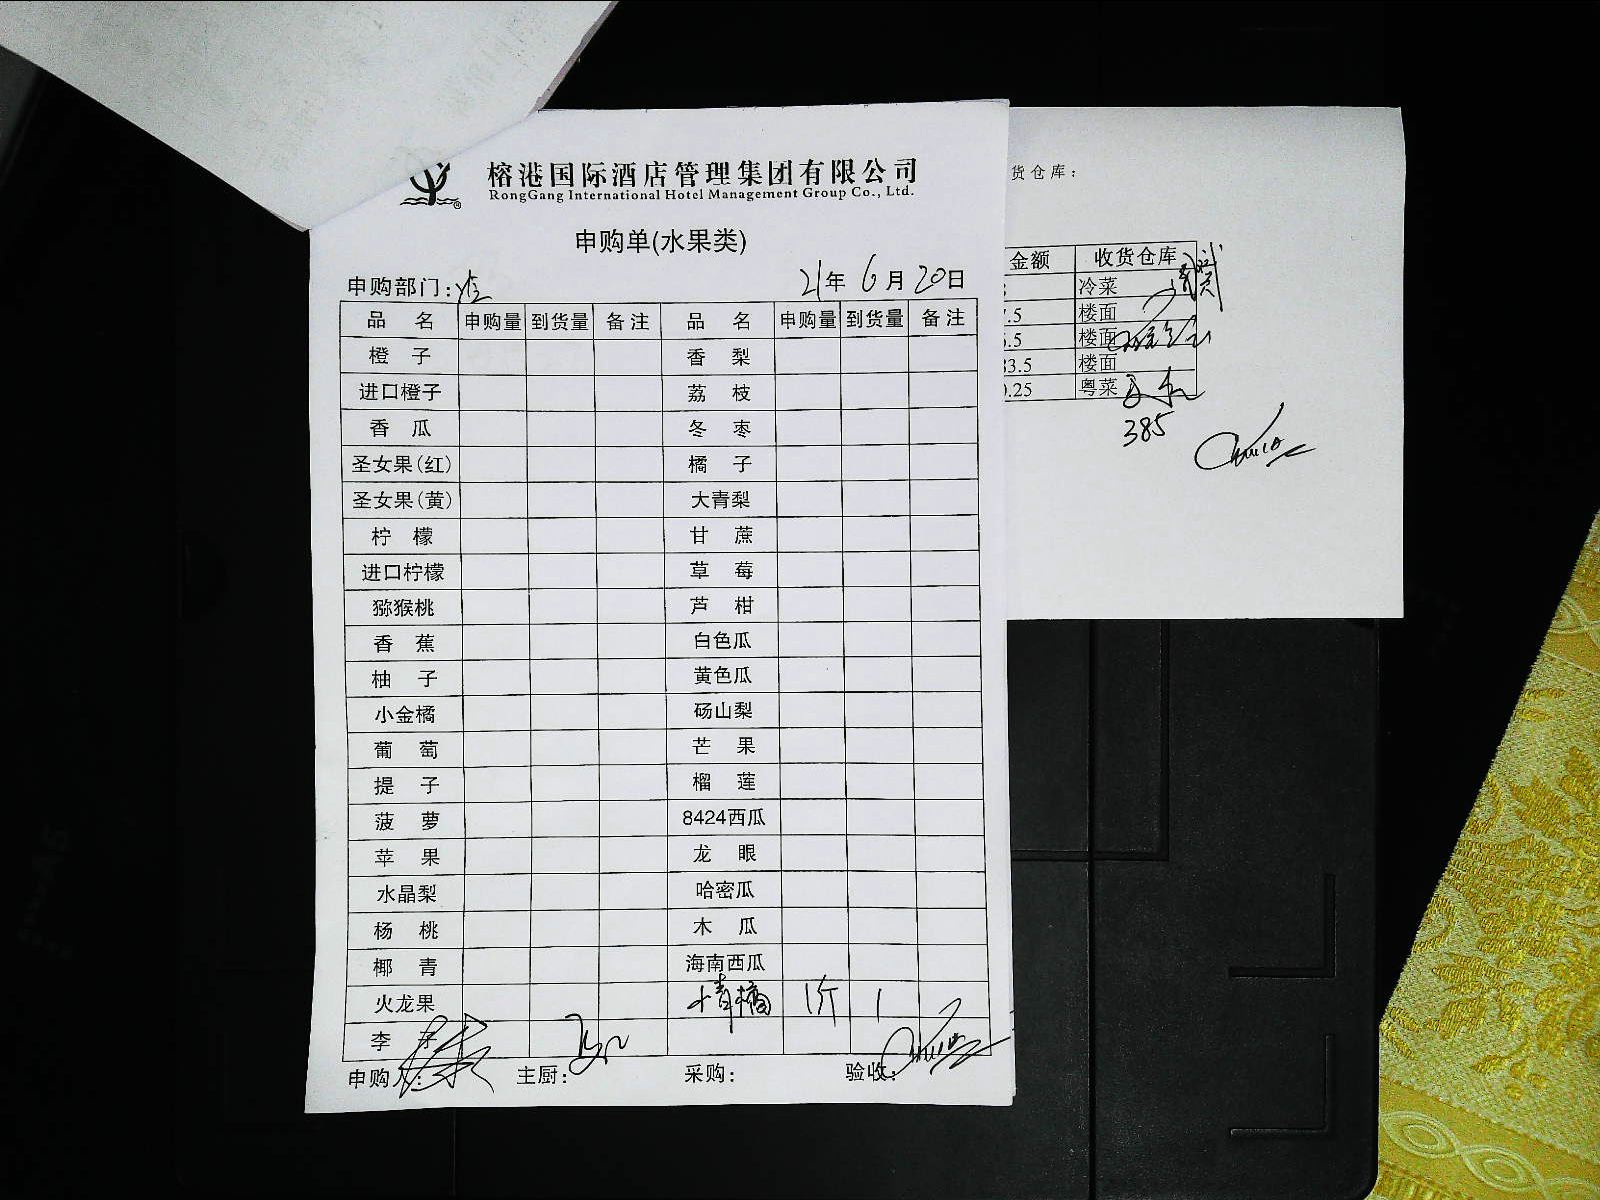 榕港国际酒店管理集团有限公司
RongGang International Hotel Management Group Co., Ltd.
申购单(水果类)
申购部门: 21年 6月 20日
品名 申购量 到货量 备注 品名 申购量 到货量 备注
橙子 香梨
进口橙子 荔枝
香瓜 冬枣
圣女果(红) 橘子
圣女果(黄) 大青梨
柠檬 甘蔗
进口柠檬 草莓
猕猴桃 芦柑
香蕉 白色瓜
柚子 黄色瓜
小金橘 砀山梨
葡萄 芒果
提子 榴莲
菠萝 8424西瓜
苹果 龙眼
水晶梨 哈密瓜
杨桃 木瓜
椰青 海南西瓜
火龙果 小青橘 1斤 1
李子
申购人: 主厨: 采购: 验收:
货仓库:
金额 收货仓库
冷菜
7.5 楼面
.5 楼面
33.5 楼面
0.25 粤菜
385